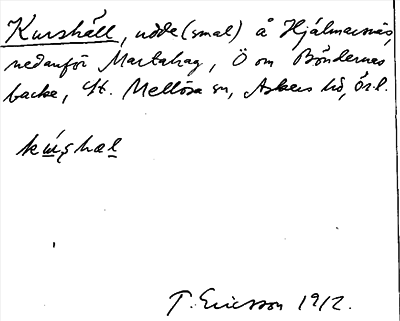 Kurshäll, udde (smal) å Hjälmarsnäs,
nedanför Martahag, Ö om Böndernas
backe, St. Mellösa sn, Askers hd, Ör.l.
kúşhal
T. Ericsson 1912.